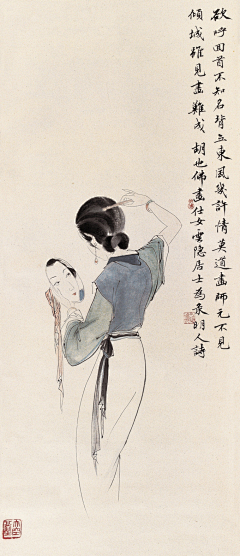 欲呼回首不知名背立東風幾許情莫道畫師元不見
傾城雖見畫難成 胡也佛畫仕女雲隐居士為录明人詩